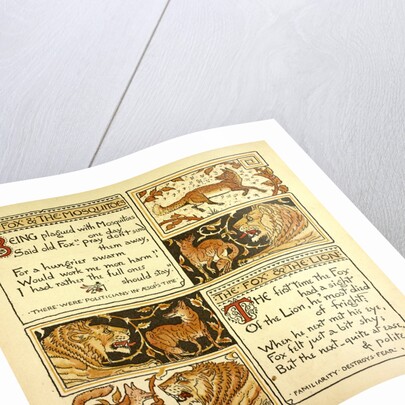 FOX & THE MOSQUITOES
BEING plagued with Mosquitoes
one day,
Said old Fox "pray don't send
them away,
For a hungrier swarm
Would work me more harm;
I had rather the full ones
should stay.
THERE WERE POLITICIANS IN ÆSOP'S TIME
THE FOX & THE LION
THE first time the Fox
had a sight
Of the Lion, he most died
of fright;
When he next met his eye,
Fox felt just a bit shy;
But the next—quite at ease,
& polite
FAMILIARITY DESTROYS FEAR